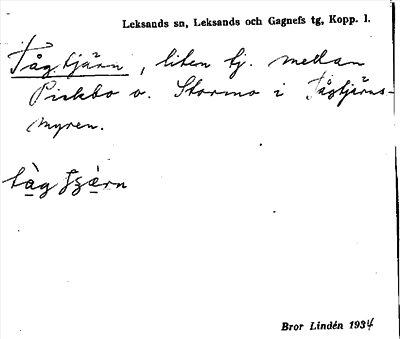 Leksands sn, Leksands och Gagnefs tg, Kopp. l.
Tågtjärn, liten tj. mellan
Pickbo o. Stormo i Tågtjärns-
myren.
Bror Lindén 1934